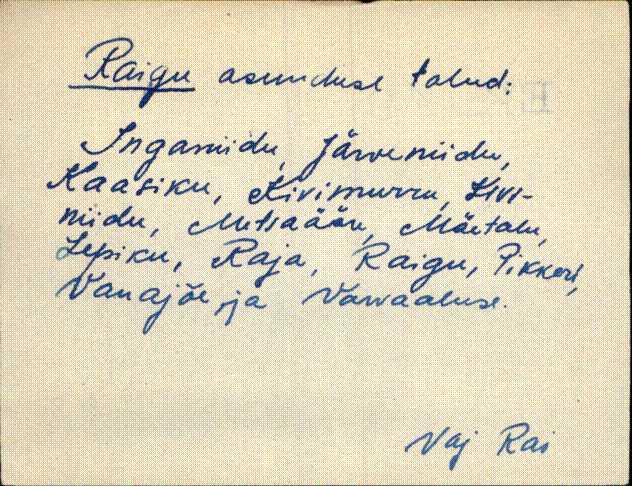 Raigu asunduse talud:
Ingamiidu, Järveniidu,
Kaasiku, Kivimurru, Kivi-
niidu, Metsaääre, Mäetalu,
Lepiku, Raja, Raigu, Pikkeri,
Vanajõe, ja
Vaj Rai